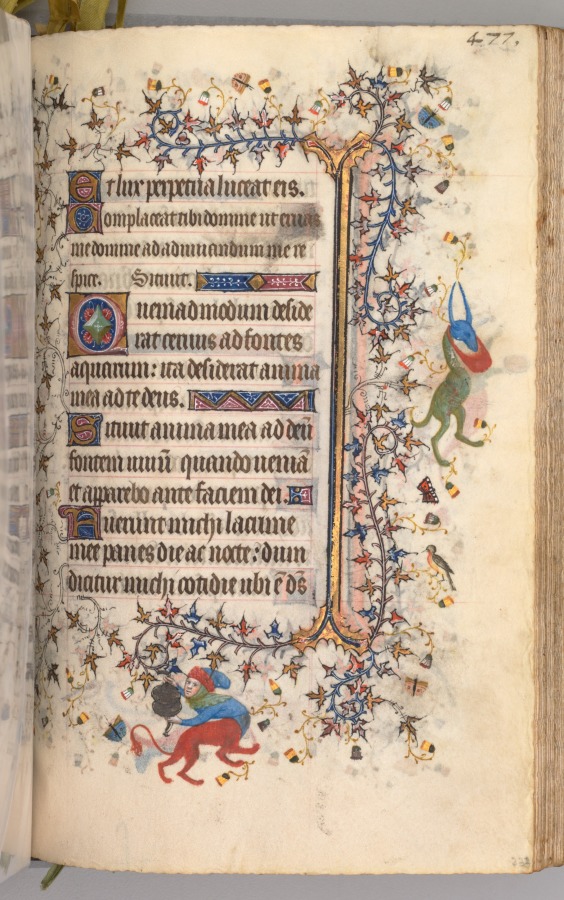 477.
Et lux perpetua luceat eis.
Complaceat tibi domine ut eruas
me domine ad adiuuandum me re
spice. Sitiuit.
Quemadmodum deside
rat ceruus ad fontes
aquarum: ita desiderat anima
mea ad te deus.
Sitiuit anima mea ad deū
fontem uiuū quando ueniā
et apparebo ante faciem dei.
Fuerunt michi lacrime
mee panes die ac nocte: dum
dicitur michi cotidie ubi ē d̄s